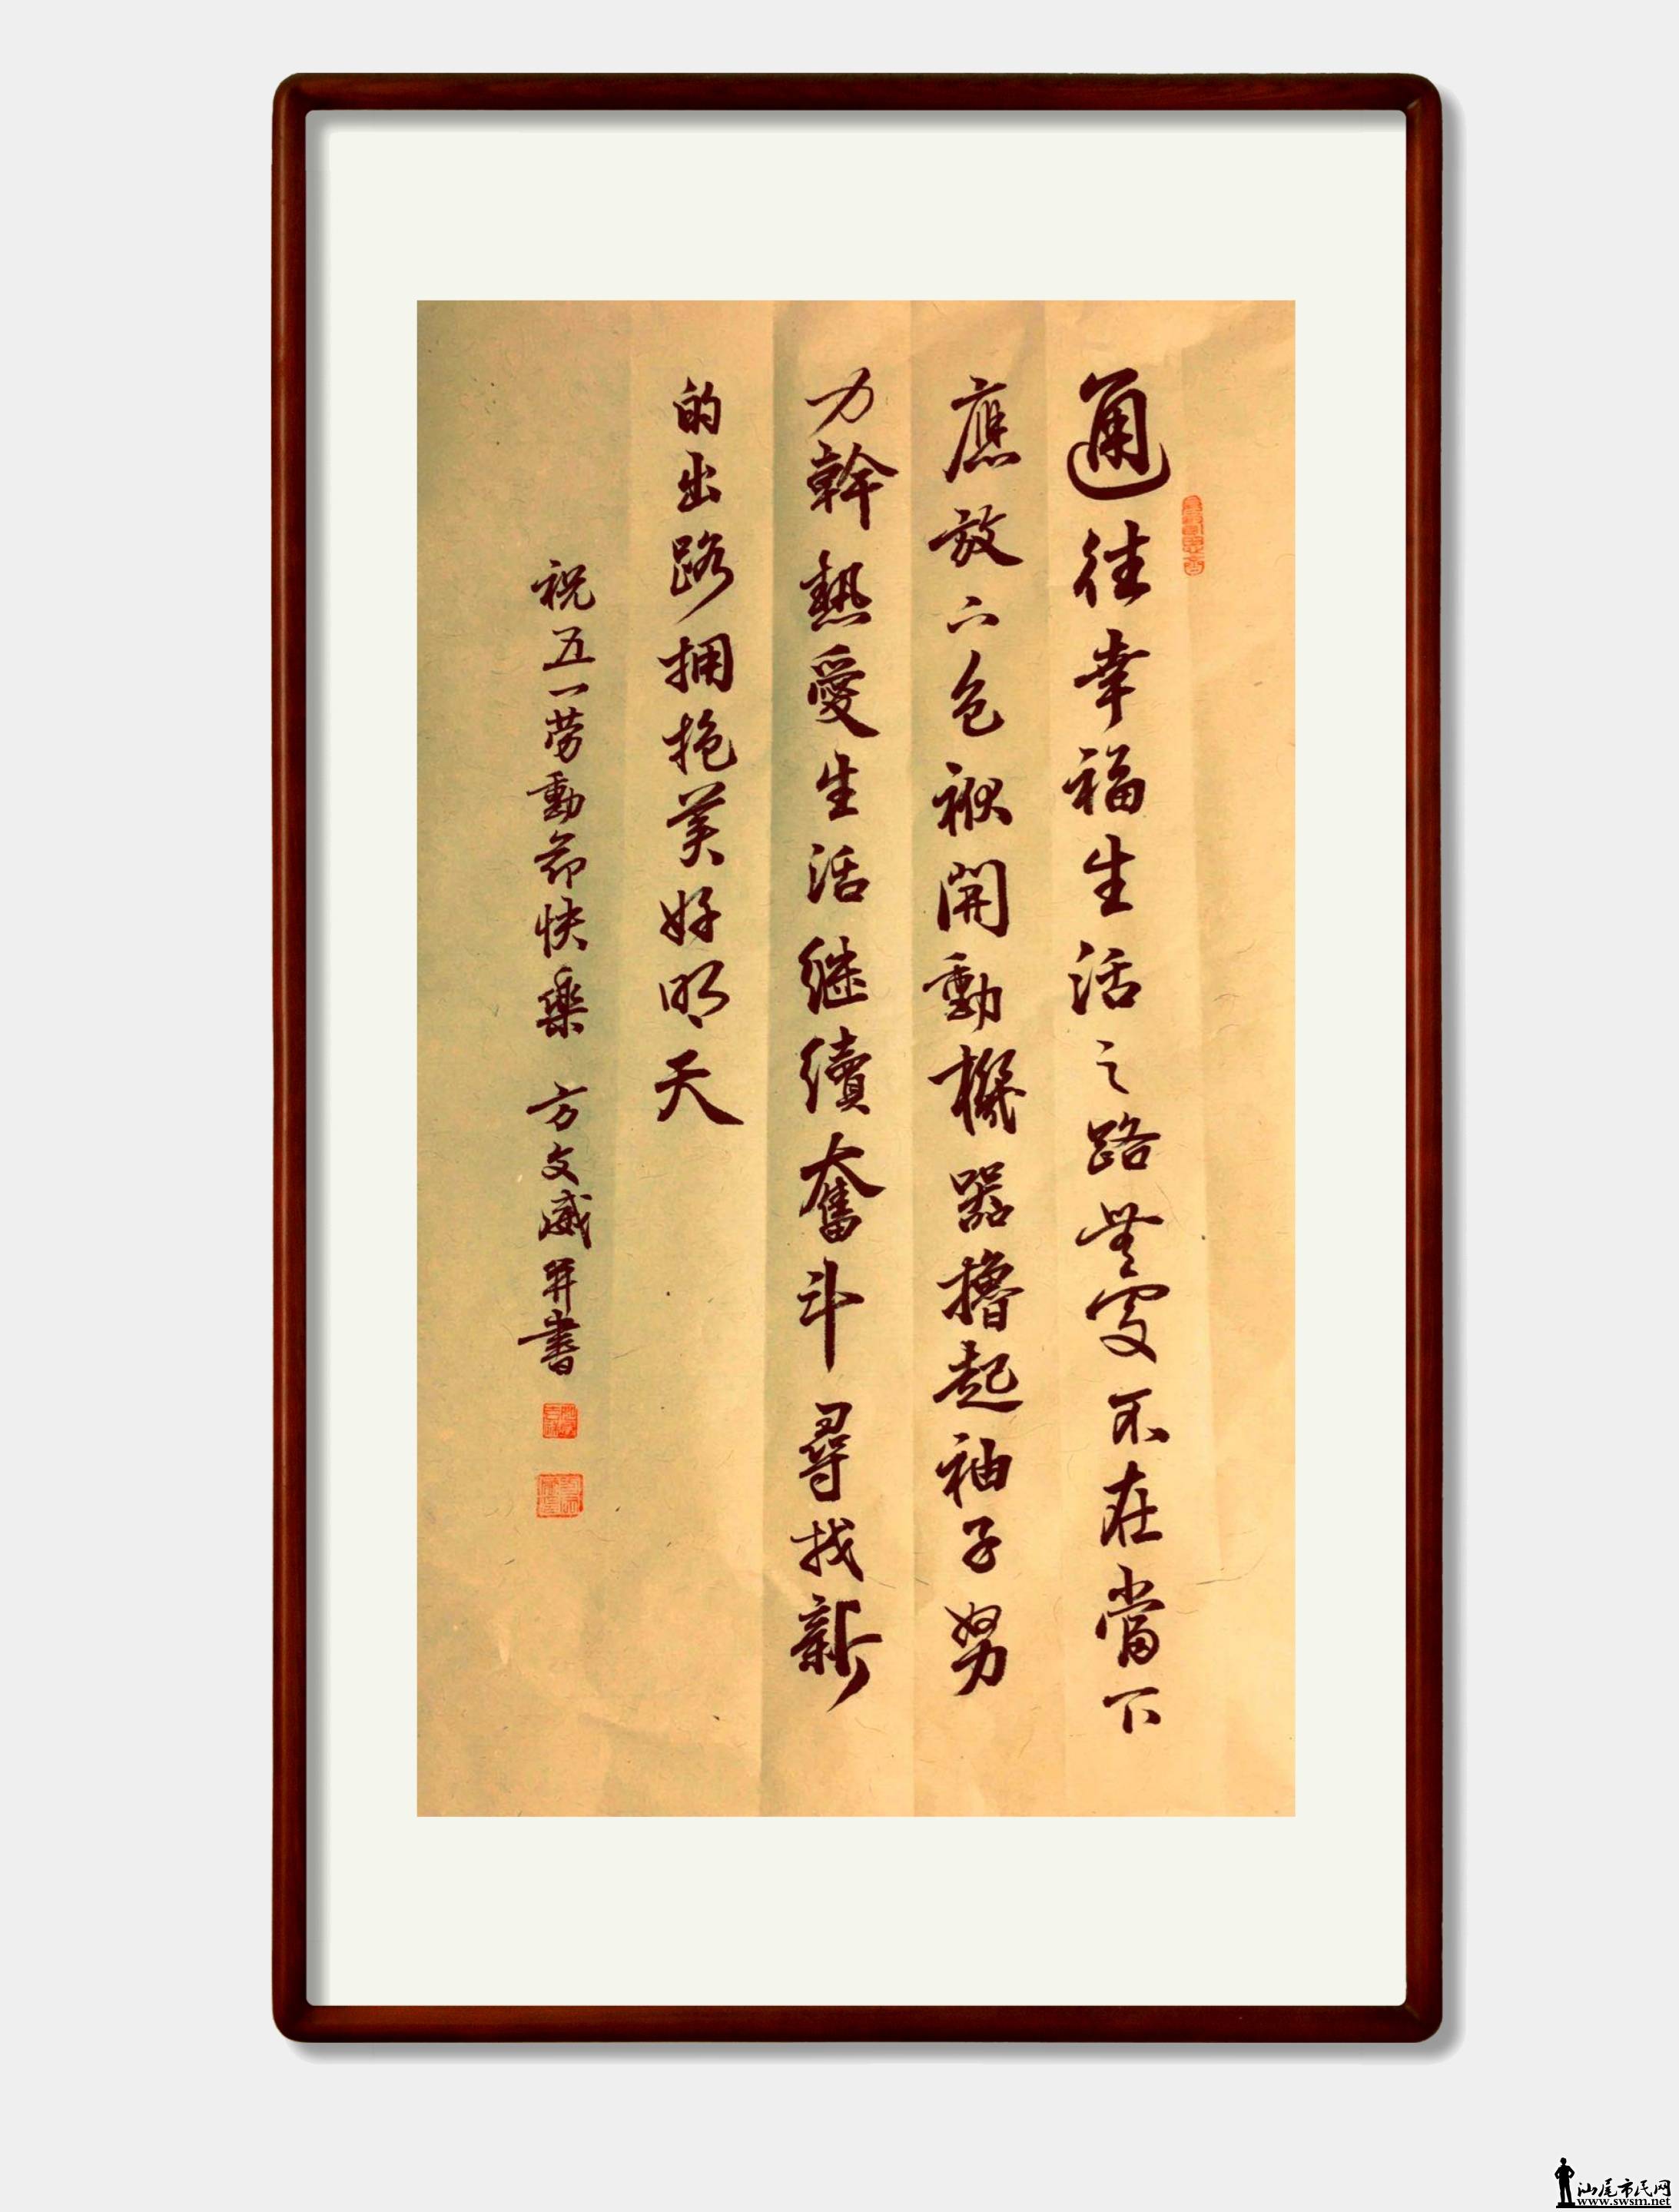 通往幸福生活之路無處不在當下
應放下包袱開動機器擼起袖子努
力幹熱愛生活继續奮斗尋找新
的出路拥抱美好明天
祝五一劳動節快樂 方文威并書
汕尾市民网
www.swsm.net